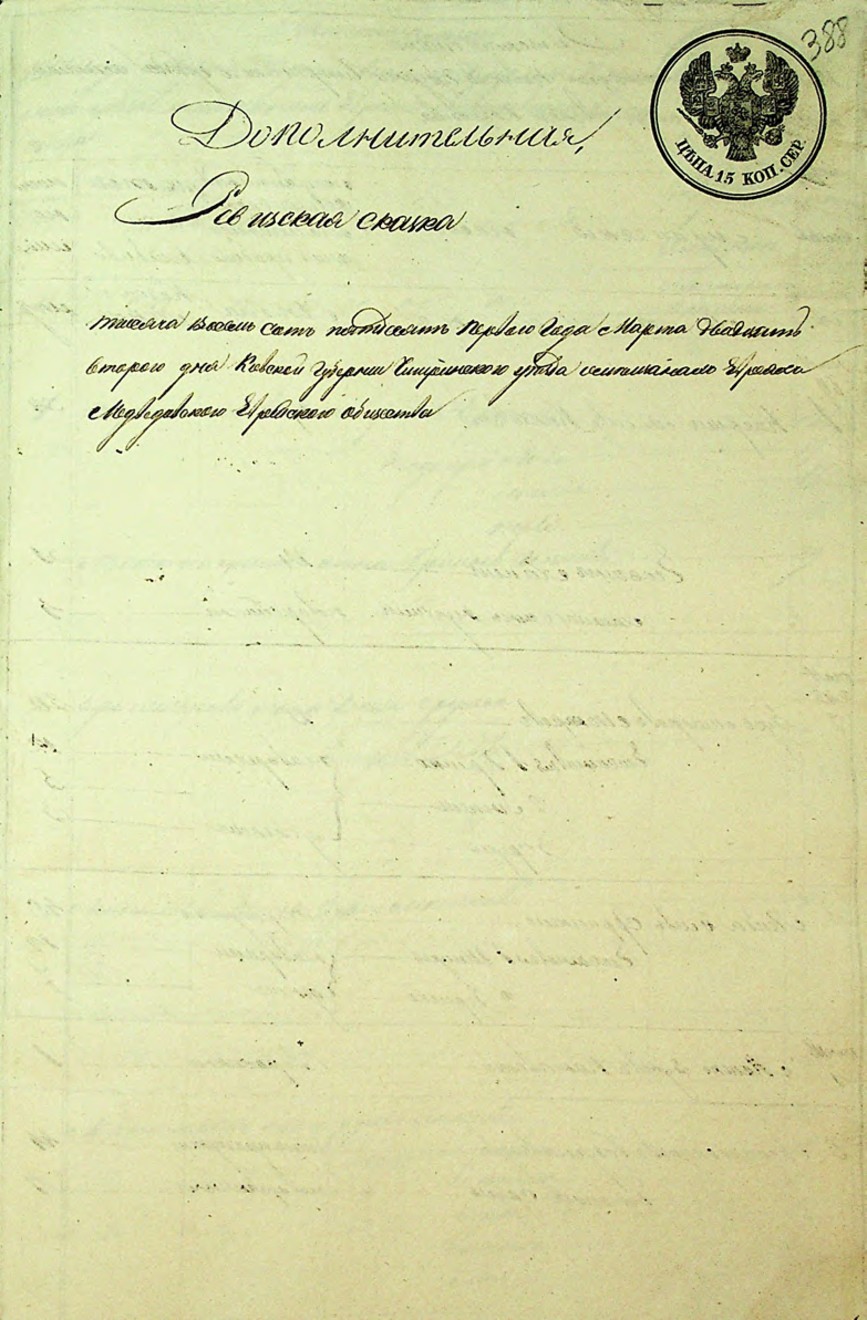 388
ЦѢНА 15 КОП. СЕР.
Дополнительная
Ревизская сказка
тысяча восемь сотъ пятдесятъ перваго года Марта двадцать
втораго дня Кіевской Губерніи Чигиринскаго уѣзда
Медведовскаго Еврейскаго общества